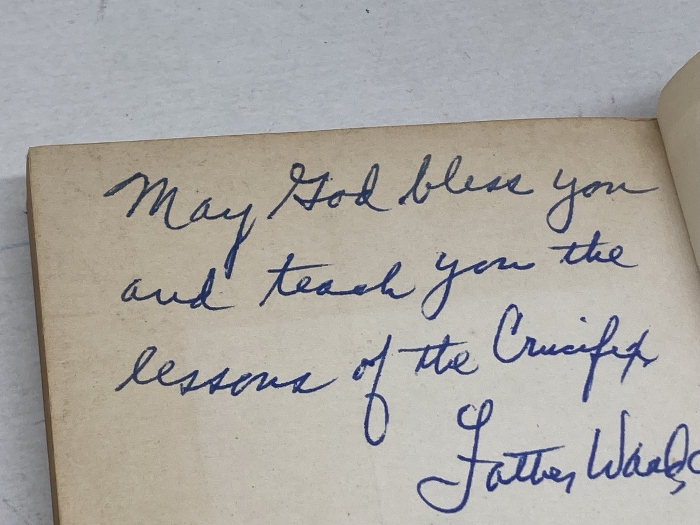 May God bless you
and teach you the
lessons of the Crucifix
Father